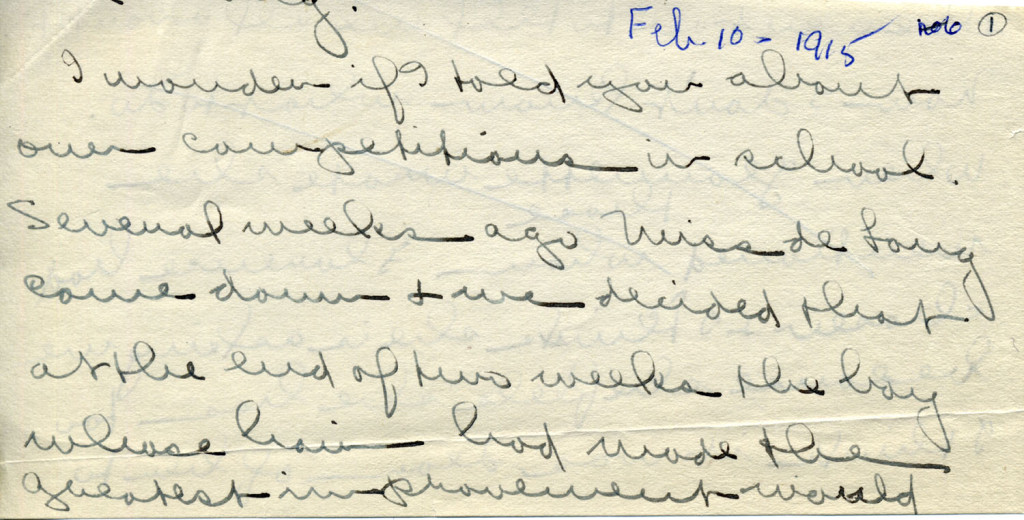 Feb 10 - 1915 ①
I wonder if I told you about
our competitions in school.
Several weeks ago Miss de Long
came down + we decided that
at the end of two weeks the boy
whose hair had made the
greatest improvement would